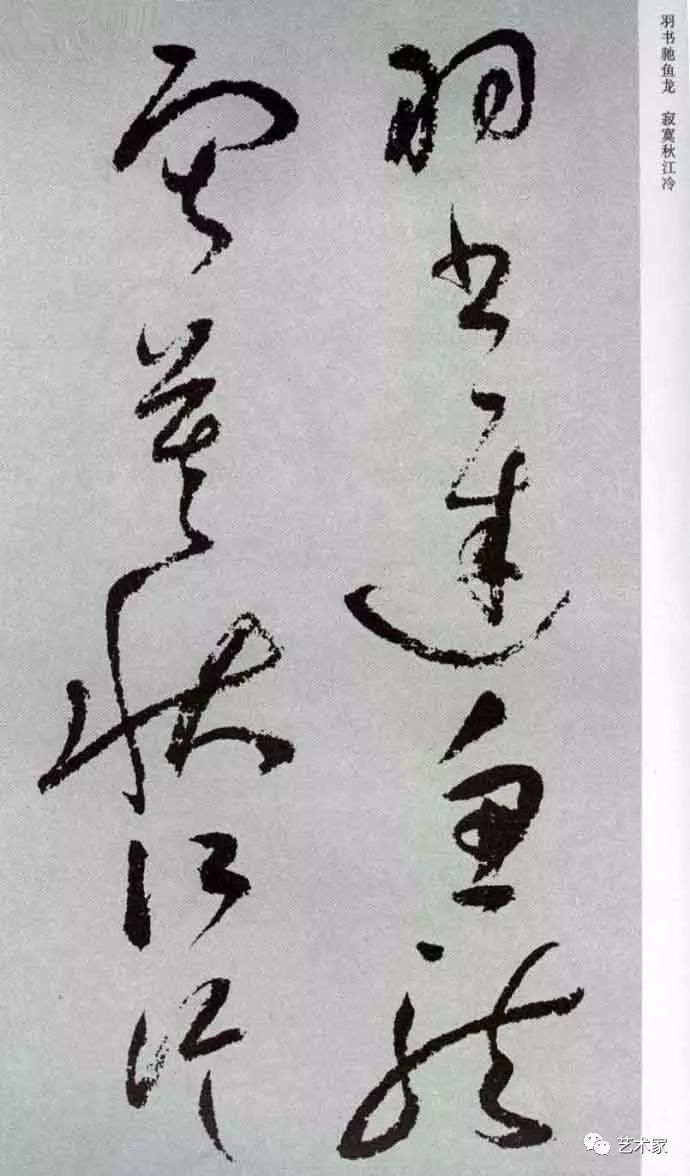 羽书驰鱼龙　寂寞秋江冷
羽書遲魚龍
寂寞秋江冷
艺术家